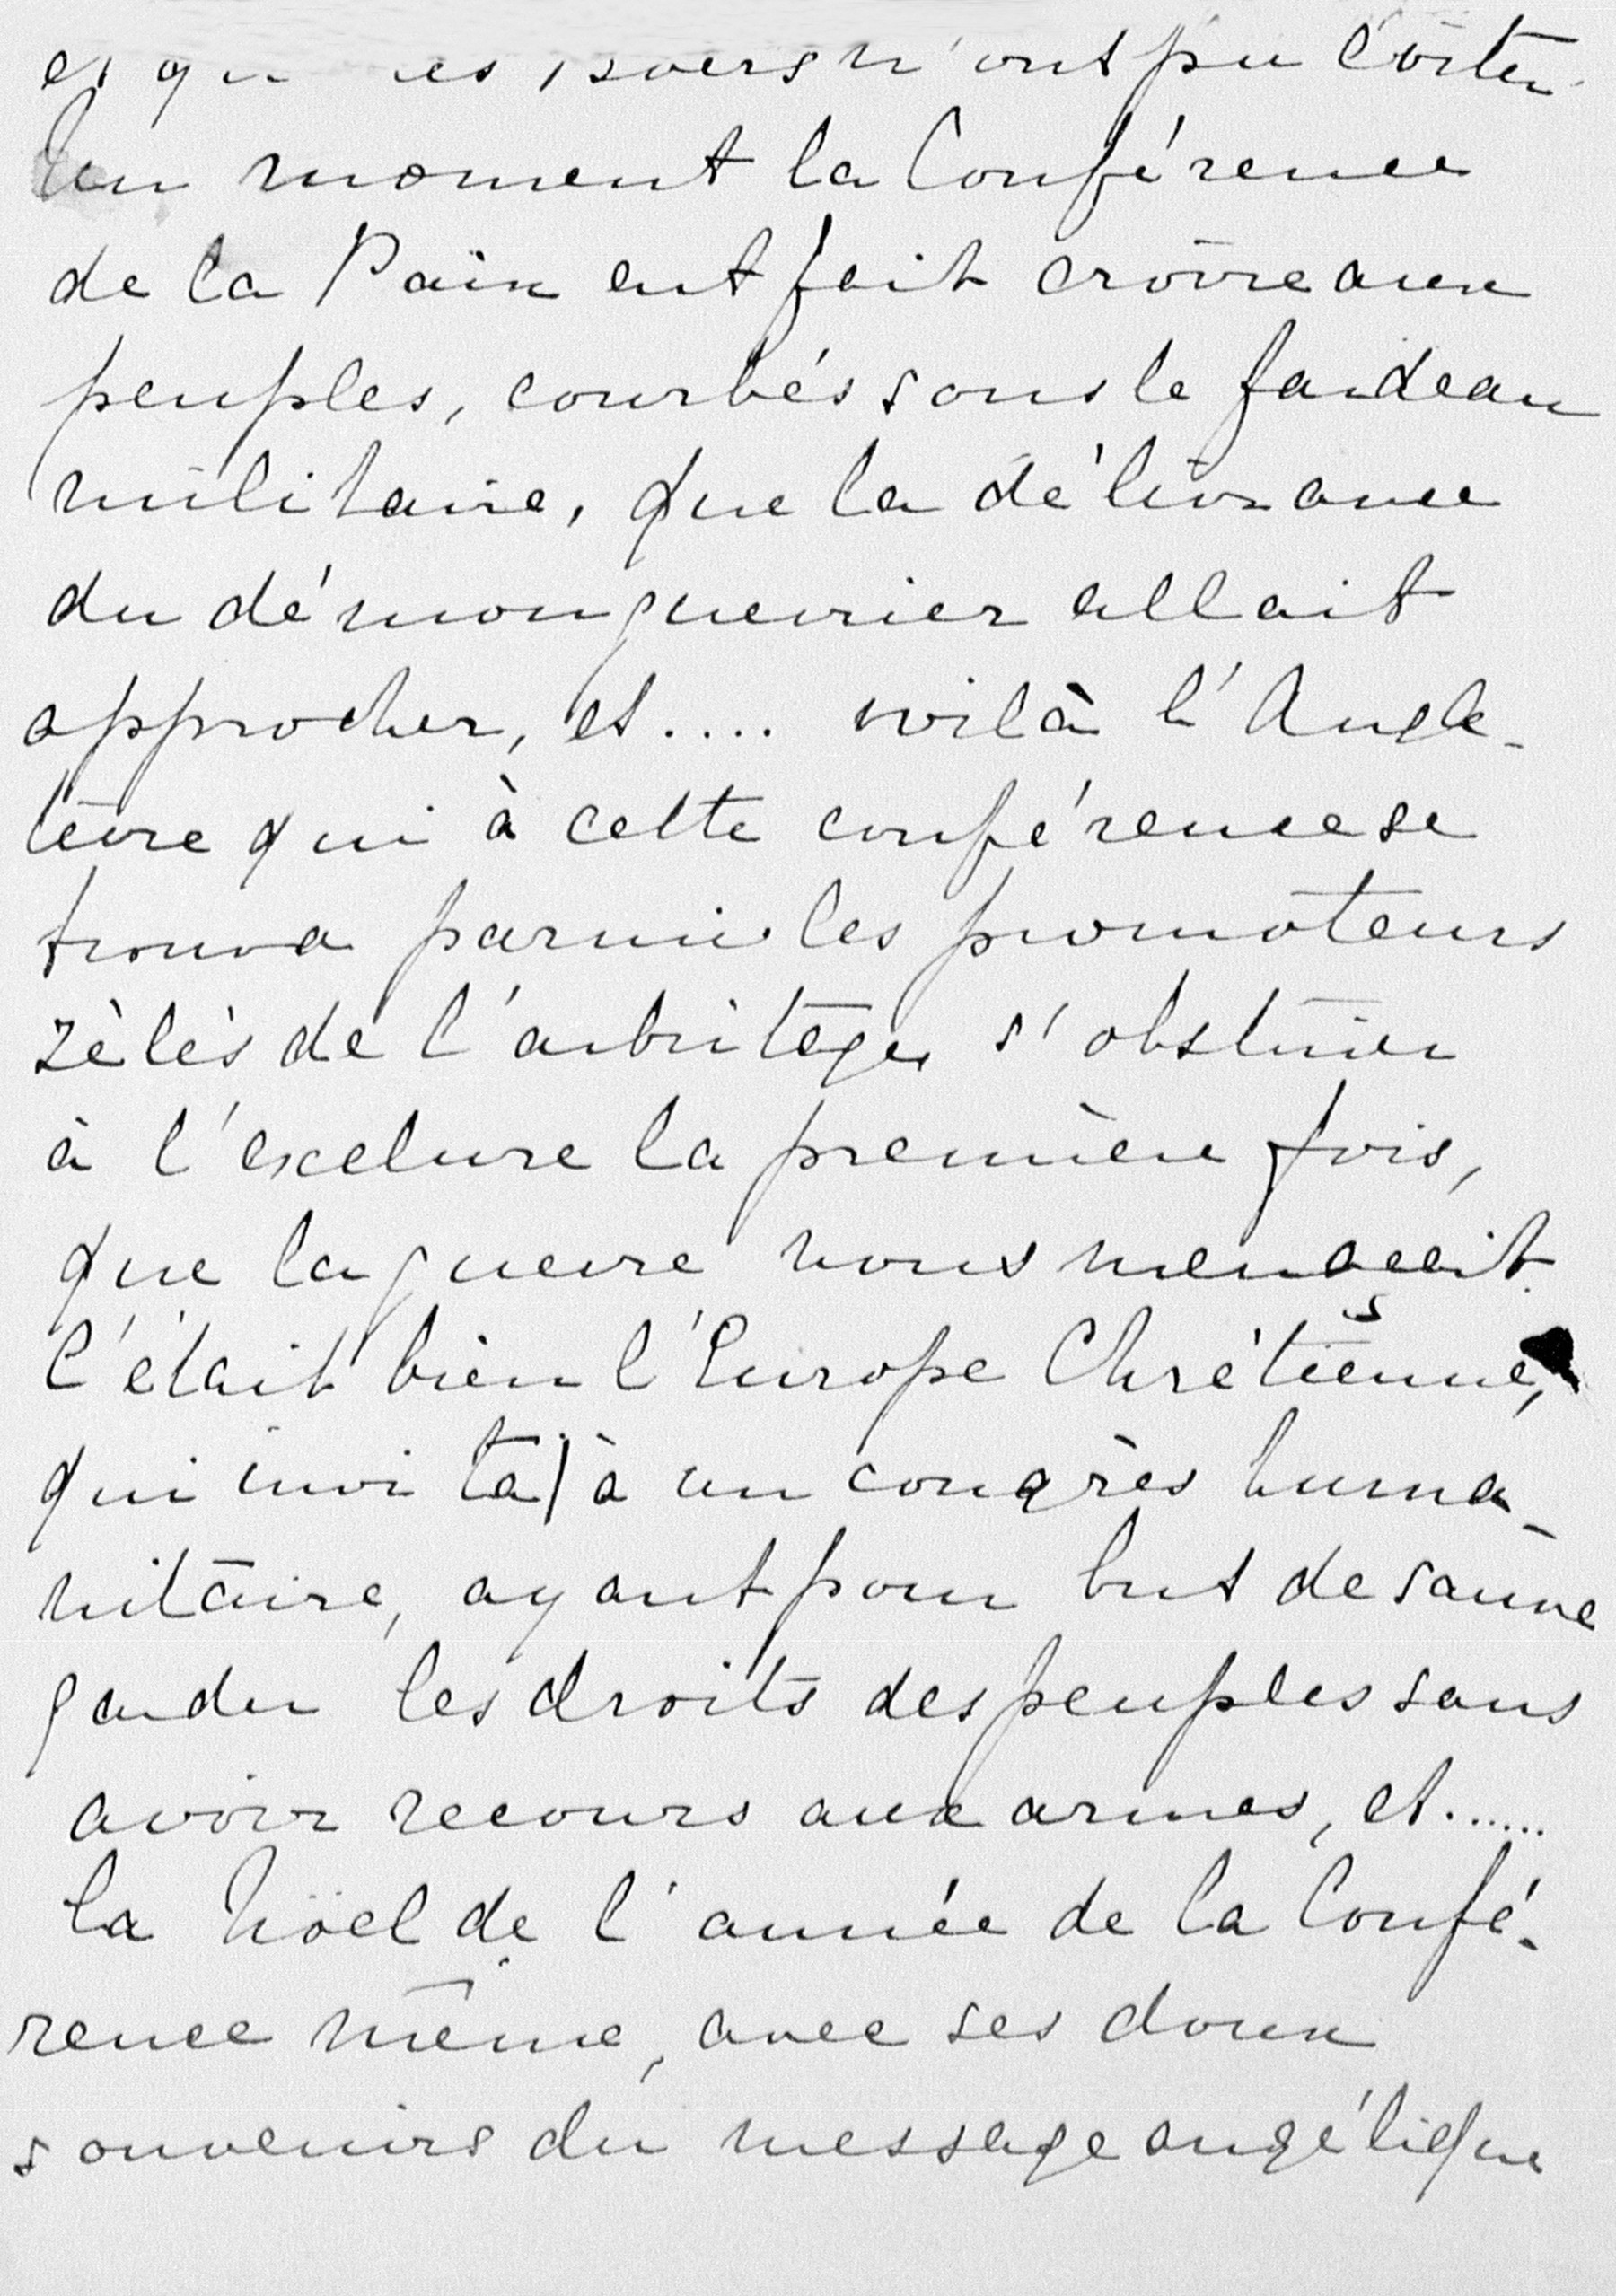 les Boers n'ont pu l'éviter
Un moment la Conférence
de la Paix eut fait croire aux
peuples, courbés sous le fardeau
militaire, que la délivrance
du démon guerrier allait
approcher, et.... voilà l'Angle-
terre qui à cette conférence se
trouva parmi les promoteurs
zèlés de l'arbitage, s'obstiner
à l'exclure la première fois,
que la guerre nous menaceait.
C'était bien l'Europe Chrétienne,
qui invita à un congrès huma-
nitaire, ayant pour but de sauve
garder les droits des peuples sans
avoir recours aux armes, et......
la Nöel de l'année de la Confé-
rence même, avec ses doux
souvenirs du message angélique